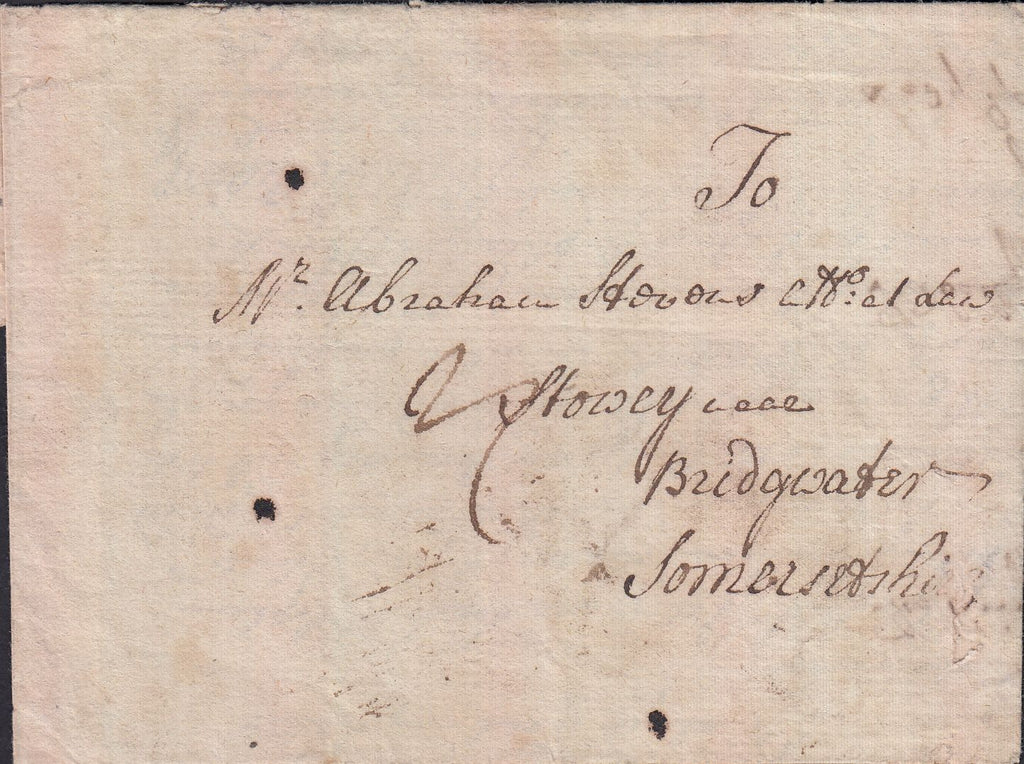 To
Mr. Abraham Stevens Atto: at Law
Stowey near
Bridgwater
Somersetshire